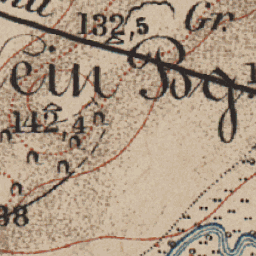 132,5 Gr.
ein Bg.
142,4
98